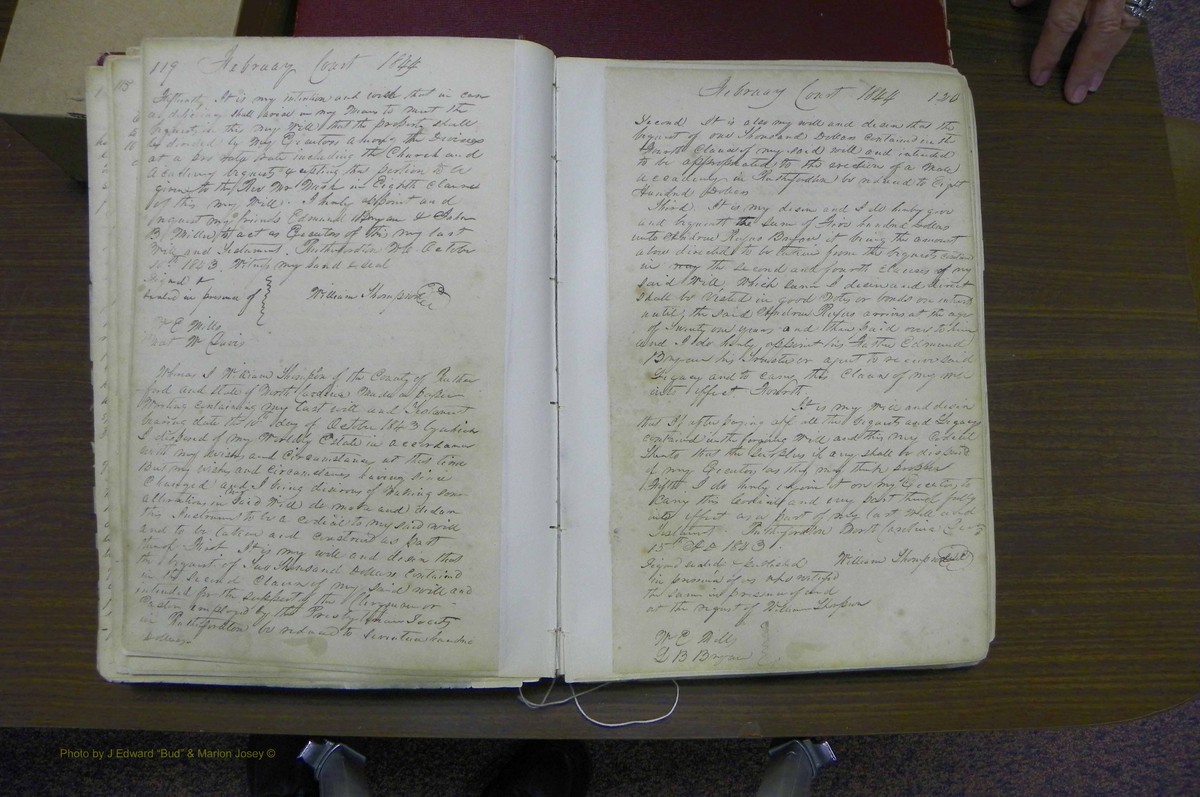 119 February Court 1844
Fifteenth, It is my intention and wish that in case
a deficiency shall prove in my Means to meet the
bequests in this my Will that the property shall
be divided by my Executors amongst the Devisees
at a pro rata rate including the Church and
academy bequests excepting the portion to be
given to the Rev Mr Nash in Eighth Clause
of this my Will. I hereby appoint and
request my friends Edmund Bryan & John
B. Mills to act as Executors of this my last
Will and Testament. Rutherfordton N.C. October
11th 1843. Witness my hand & seal
Signed &
sealed in presence of William Thompson Seal
W E Mills
W Davis
Whereas I William Thompson of the County of Ruther
ford and State of North Carolina Made a Paper
Writing containing my last will and Testament
bearing date the day of October 1843 by which
I disposed of my Worldly Estate in accordance
with my wishes and Circumstances at that time
But my wishes and circumstances having since
Changed and I being desirous of making some
alterations in my said Will do make and Ordain
this Instrument to be a codicil to my said will
and to be taken and construed as part
thereof First. It is my will and desire that
the bequest of Two Thousand Dollars contained
in the second Clause of my said will and
intended for the support of the Clergyman or
Pastor employed by the Presbyterian Society
in Rutherfordton be reduced to seventeen hundred
Dollars
February Court 1844 120
Second It is also my will and desire that the
bequest of one Thousand Dollars contained in the
fourth Clause of my said will and intended
to be appropriated to the erection of a Male
accademy in Rutherfordton be reduced to Eight
Hundred Dollars
Third. It is my desire and I do hereby give
and bequeath the sum of Five hundred Dollars
unto Rufus Bryan it being the amount
above directed to be taken from the bequests contained
in the second and fourth clauses of my
said Will, Which sum I desire and direct
shall be Vested in good Notes or bonds on interest
until the said Rufus arrives at the age
of Twenty one years and then paid over to him
and I do hereby appoint his Father Edmund
Bryan his Trustee or agent to receive said
Legacy and to carry this Clause of my will
into effect
It is my Will and desire
that if after paying all the bequests and Legacys
contained in the foregoing Will and this my Codicil
thereto that the Surpluss if any shall be disposed
of by my Executors as they may think proper
Fifth I do hereby enjoin it on my Executors to
Carry this Codicil and every part thereof fully
into effect as a part of my last Will and
Testament Rutherfordton North Carolina Dec
15th AD 1843
Signed sealed & published William Thompson Seal
in presence of us who
the same in presence of and
at the request of William Thompson
W E Mills
B Bryan
Photo by J Edward "Bud" & Marion Josey ©